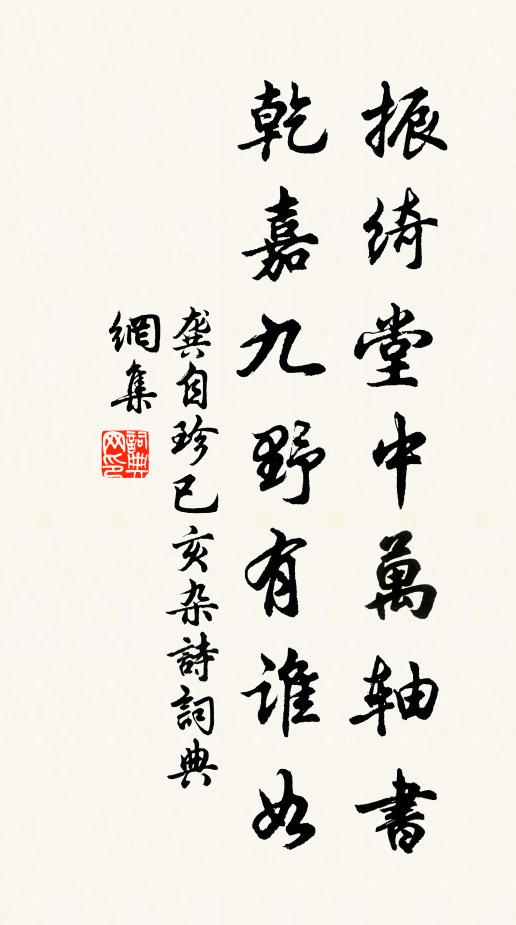 振綺堂中萬軸書
乾嘉九野有誰如
龔自珍己亥杂詩詞典
網集
詞典网印